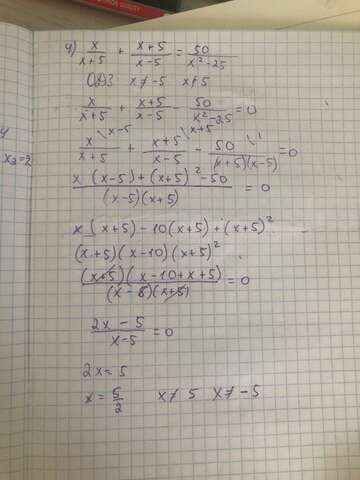 4) x/(x+5) + (x+5)/(x-5) = 50/(x²-25)
ОДЗ x≠-5 x≠5
x/(x+5) + (x+5)/(x-5) - 50/(x²-25) = 0
x/(x+5) \x-5 + (x+5)/(x-5) \x+5 - 50/((x+5)(x-5)) \1 = 0
x₂=2
(x(x-5)+(x+5)²-50)/((x-5)(x+5)) = 0
x(x+5)-10(x+5)+(x+5)²
(x+5)(x-10)(x+5)²
((x+5)(x-10+x+5))/((x-5)(x+5)) = 0
(2x-5)/(x-5) = 0
2x=5
x=5/2 x≠5 x≠-5